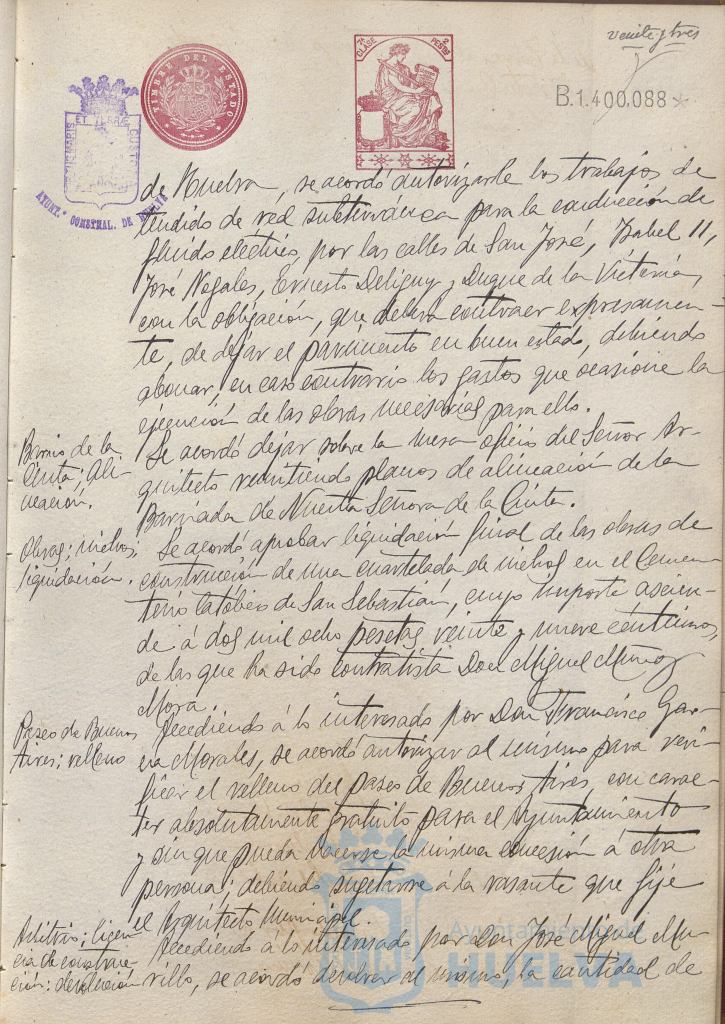 veinte y tres
TIMBRE DEL ESTADO
7ª CLASE 2 PESTAS
B.1.400.088*
PORTUS MARIS ET TERRÆ CUSTODIA
AYUNT.º CONSTNAL. DE HUELVA
de Huelva, se acordó autorizarle los trabajos de
tendido de red subterránea para la conducción de
fluido electrico, por las calles de San José, Isabel II,
José Nogales, Ernesto Deligny y Duque de la Victoria,
con la obligación, que deberá contraer expresamen-
te, de dejar el pavimento en buen estado, debiendo
abonar, en caso contrario los gastos que ocasione la
ejecución de las obras necesarias para ello.
Barrio de la
Cinta; ali-
neación.
Se acordó dejar sobre la mesa oficio del Señor Ar-
quitecto remitiendo planos de alineación de la
Barriada de Nuestra Señora de la Cinta.
Obras; nichos;
liquidación.
Se acordó aprobar liquidación final de las obras de
construcción de una cuartelada de nichos en el Cemen-
terio Católico de San Sebastián, cuyo importe ascien-
de á dos mil ocho pesetas veinte y nueve céntimos,
de las que ha sido contratista Don Miguel Muñoz
Mora.
Paseo de Buenos
Aires; relleno
Accediendo á lo interesado por Don Francisco Gar-
cia Morales, se acordó autorizar al mismo para veri-
ficar el relleno del paseo de Buenos Aires, con carac-
ter absolutamente gratuito para el Ayuntamiento
y sin que pueda hacerse la misma concesión á otra
persona; debiendo sugetarse á la rasante que fije
el Arquitecto Municipal.
Arbitrios; licen-
cia de construc-
ción; devolución
Accediendo á lo interesado por Don José Miguel Mu-
rillo, se acordó devolver al mismo, la cantidad de
Ayuntamiento de
HUELVA